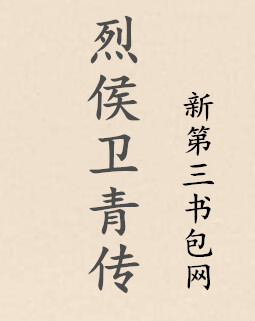 烈侯卫青传
新第三书包网